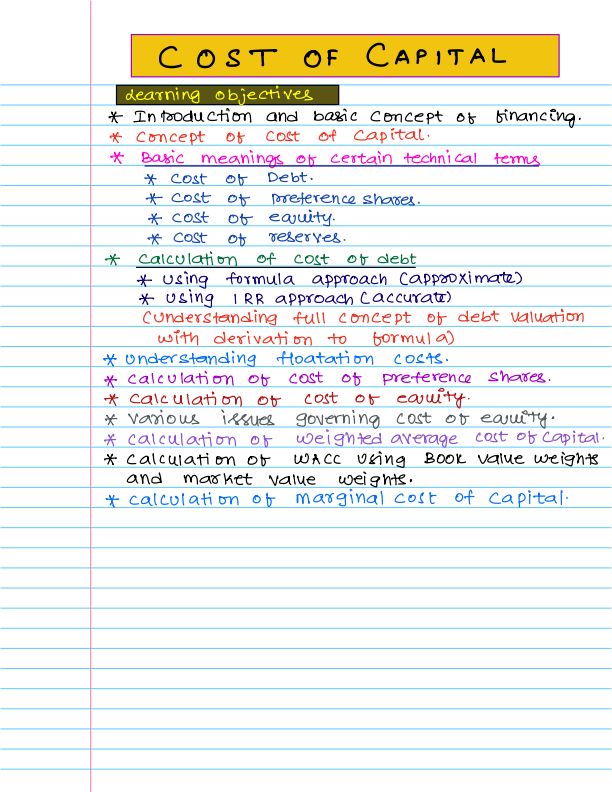 COST OF CAPITAL
Learning objectives
* Introduction and basic concept of financing.
* Concept of cost of capital.
* Basic meanings of certain technical terms
* Cost of Debt.
* Cost of preference shares.
* Cost of equity.
* Cost of reserves.
* Calculation of cost of debt
* Using formula approach (approximate)
* Using IRR approach (accurate)
(Understanding full concept of debt valuation
with derivation to formula)
* Understanding floatation costs.
* Calculation of cost of preference shares.
* Calculation of cost of equity.
* Various issues governing cost of equity.
* Calculation of weighted average cost of capital.
* Calculation of WACC using Book value weights
and market value weights.
* Calculation of marginal cost of capital.